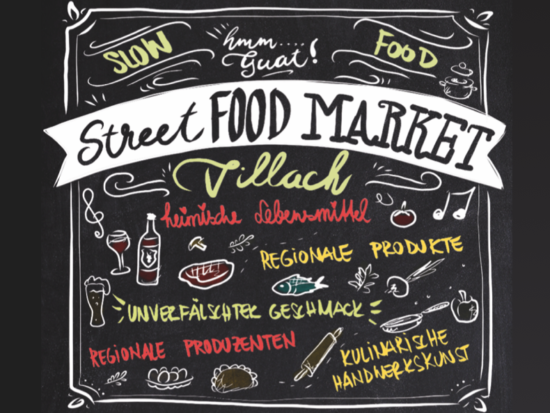 SLOW
hmm....
Guat!
FOOD
Street FOOD MARKET
Villach
heimische Lebensmittel
REGIONALE PRODUKTE
UNVERFÄLSCHTER GESCHMACK
REGIONALE PRODUZENTEN
KULINARISCHE
HANDWERKSKUNST